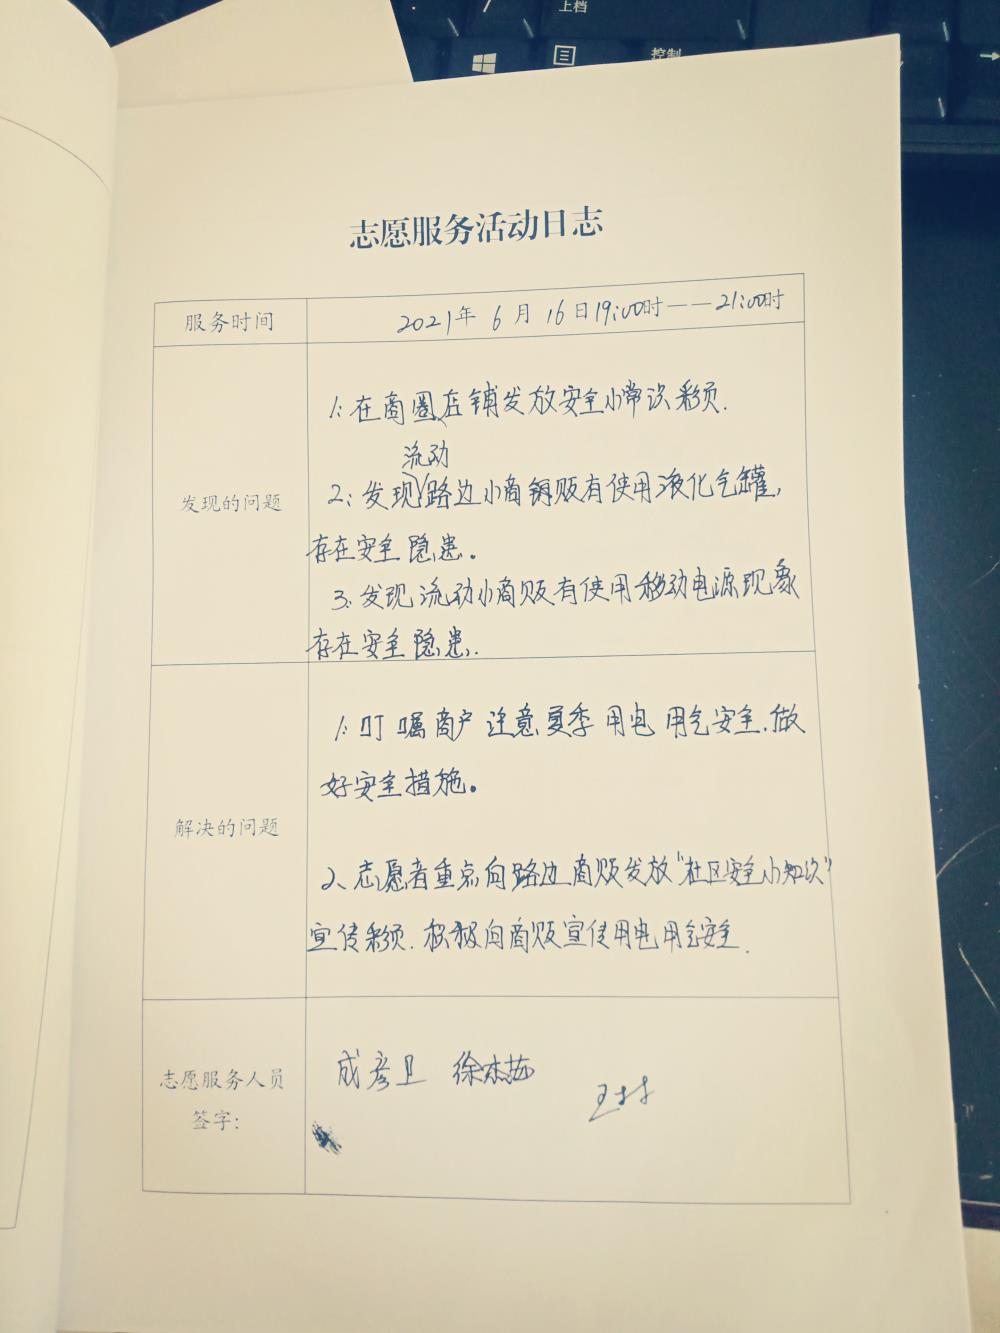 上档
控制
志愿服务活动日志
服务时间
2021年 6月 16日19:00时——21:00时
发现的问题
1:在商圈店铺发放安全小常识彩页.
流动
2:发现路边小商贩有使用液化气罐,
存在安全隐患。
3.发现流动小商贩有使用移动电源现象
存在安全隐患.
解决的问题
1:叮嘱商户注意夏季用电用气安全.做
好安全措施。
2、志愿者重点向路边商贩发放“社区安全小知识”
宣传彩页.积极向商贩宣传用电用气安全.
志愿服务人员
签字:
成彦卫 徐杰